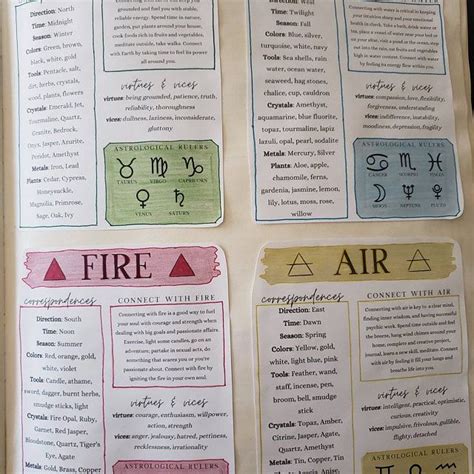 Direction: North
Time: Midnight
Season: Winter
Colors: Green, brown,
black, white, gold
Tools: Pentacle, salt,
dirt, herbs, crystals,
wood, plants, flowers
Crystals: Emerald, Jet,
Tourmaline, Quartz,
Granite, Bedrock,
Onyx, Jasper, Azurite,
Peridot, Amethyst
Metals: Iron, Lead
Plants: Cedar, Cypress,
Honeysuckle,
Magnolia, Primrose,
Sage, Oak, Ivy
grounded and you feel with stable,
reliable energy. Spend time in nature,
garden, put plants around your house,
cook foods rich in fruits and vegetables,
meditate outside, take walks. Connect
with Earth by taking time to feel its power
all around you.
virtues & vices
virtues: being grounded, patience, truth,
reliability, thoroughness
vices: dullness, laziness, inconsiderate,
gluttony
ASTROLOGICAL RULERS
♉ ♍ ♑
TAURUS VIRGO CAPRICORN
♀ ♄
VENUS SATURN
Direction: West
Time: Twilight
Season: Fall
Colors: Blue, silver,
white, turquoise, navy
Tools: Sea shells, rain
water, ocean water,
seaweed, hag stones,
chalice, cup, cauldron
Crystals: Amethyst,
aquamarine, blue fluorite,
topaz, tourmaline, lapiz
lazuli, opal, pearl, sodalite
Metals: Mercury, Silver
Plants: Aloe, apple,
chamomile, fern,
gardenia, jasmine, lemon,
lily, lotus, moss, rose,
willow
Connecting with water is cleaning to keeping
your intuition clear, and your mental and emotional
health in check. Take a bath, drink water or
tea, place a vessel of water near your
or your altar, visit a pond or the ocean, step
out into the rain, eat fruits and vegetables
high in water content. Connect with water
by feeling its energy flow within you.
virtues & vices
virtues: compassion, love, flexibility,
forgiveness, understanding
vices: indifference, instability,
moodiness, depression, fragility
ASTROLOGICAL RULERS
♋ ♏ ♓
CANCER SCORPIO PISCES
☽ ♆ ♇
MOON NEPTUNE PLUTO
FIRE
correspondences
Direction: South
Time: Noon
Season: Summer
Colors: Red, orange, gold,
white, violet
Tools: Candle, athame,
sword, dagger, burnt herbs,
smudge sticks, light
Crystals: Fire Opal, Ruby,
Garnet, Red Jasper,
Bloodstone, Quartz, Tiger's
Eye, Agate
Metals: Gold, Brass, Copper
CONNECT WITH FIRE
Connecting with fire is a good way to fuel
your soul with courage and strength when
dealing with big goals and passionate affairs.
Exercise, light some candles, go on an
adventure, partake in sexual acts, do
something that scares you or you're
passionate about. Connect with fire by
igniting the fire in your own soul.
virtues & vices
virtues: courage, enthusiasm, willpower,
action, strength
vices: anger, jealousy, hatred, pettiness,
recklessness, irrationality
ASTROLOGICAL RULERS
AIR
correspondences
Direction: East
Time: Dawn
Season: Spring
Colors: Yellow, gold,
white, light blue, pink
Tools: Feather, wand,
staff, incense, pen,
broom, bell, smudge
stick
Crystals: Topaz, Amber,
Citrine, Jasper, Agate,
Quartz, Amethyst
Metals: Tin, Copper
CONNECT WITH AIR
Connecting with air is key to a clear mind,
finding inner wisdom, and having successful
psychic work. Spend time outside and feel
the breeze, hang wind chimes around your
home, complete and creative project,
journal, learn a new skill, meditate. Connect
with air by feeling it fill your lungs and
breathe life into you.
virtues & vices
virtues: intelligent, practical, optimistic,
curious, creativity
vices: impulsive, frivolous, gullible,
prejudiced, detached
ASTROLOGICAL RULERS